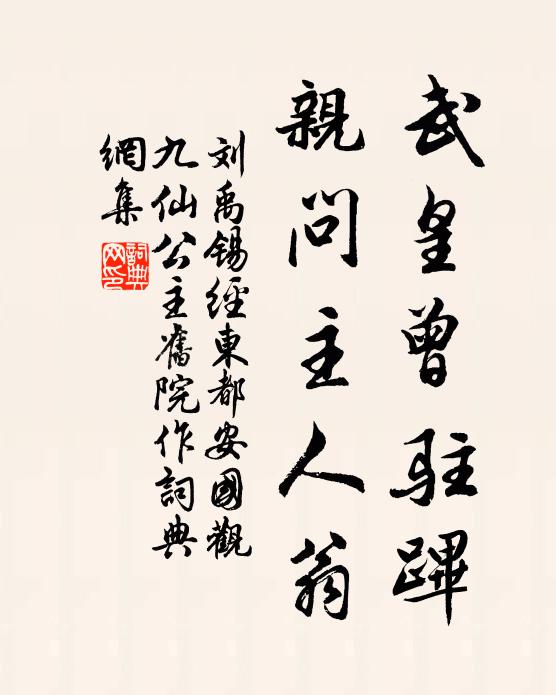 武皇曾駐蹕
親問主人翁
刘禹錫經東都安國觀
九仙公主舊院作詞典
網集
詞典
网印